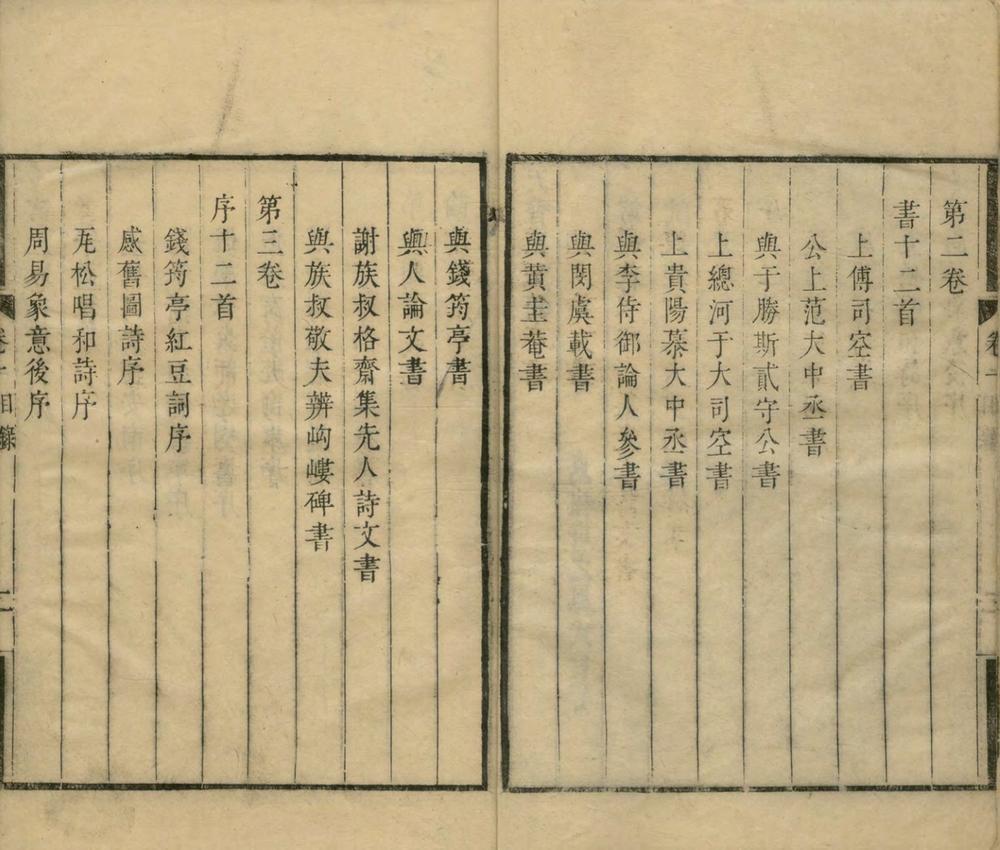 第二卷
書十二首
上傅司空書
公上范大中丞書
與于勝斯貳守公書
上總河于大司空書
上貴陽慕大中丞書
與李侍御論人參書
與閔虞載書
與黄圭菴書
與錢筠亭書
與人論文書
謝族叔格齋集先人詩文書
與族叔敬夫辨岣嶁碑書
第三卷
序十二首
錢筠亭紅豆詞序
感舊圖詩序
尨松唱和詩序
周易象意後序
目錄
二